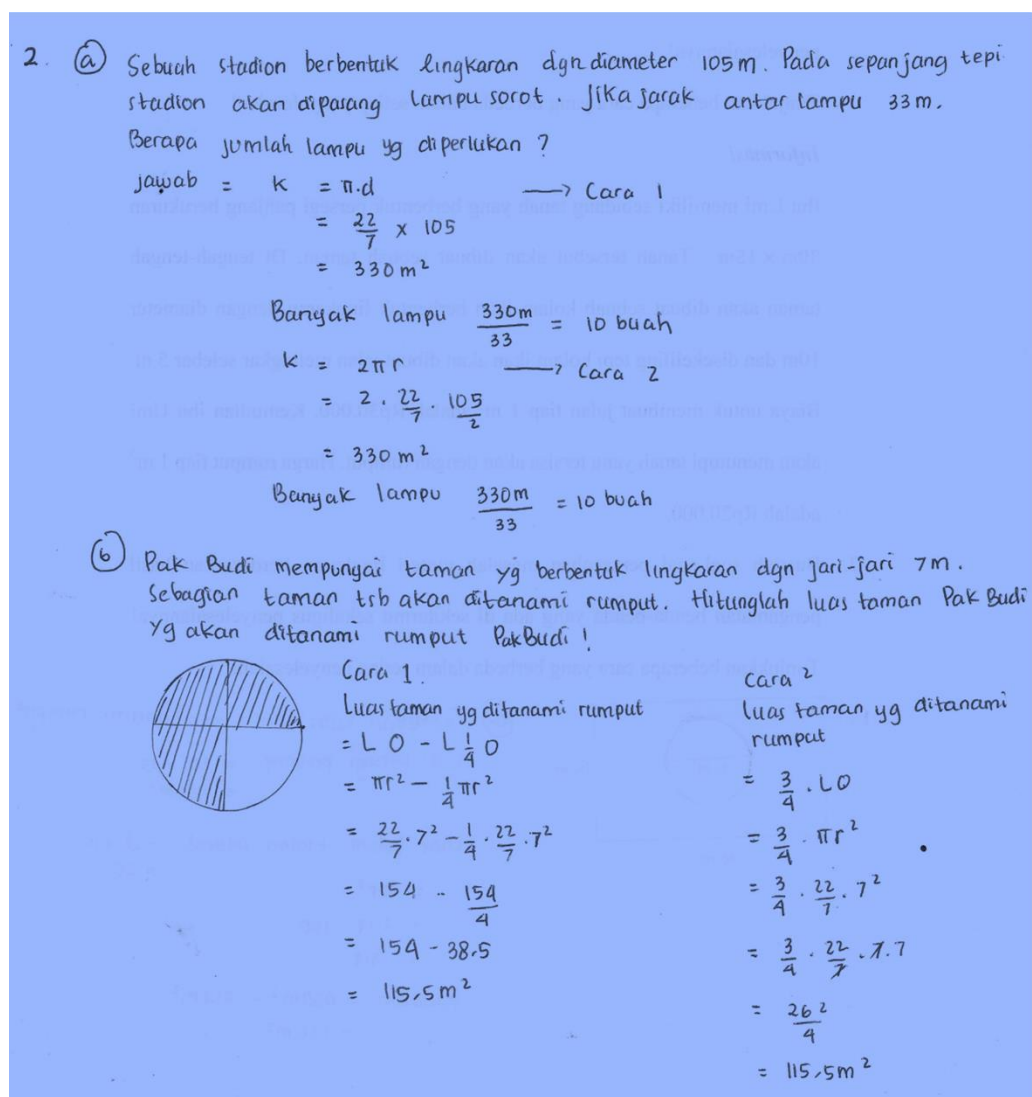 2. (a) Sebuah stadion berbentuk lingkaran dgn diameter 105 m. Pada sepanjang tepi
stadion akan dipasang lampu sorot. Jika jarak antar lampu 33 m.
Berapa jumlah lampu yg diperlukan ?
jawab = k = π.d → Cara 1
= 22/7 x 105
= 330 m²
Banyak lampu 330m/33 = 10 buah
k = 2πr → Cara 2
= 2 . 22/7 . 105/2
= 330 m²
Banyak lampu 330m/33 = 10 buah
(b) Pak Budi mempunyai taman yg berbentuk lingkaran dgn jari-jari 7 m.
Sebagian taman tsb akan ditanami rumput. Hitunglah luas taman Pak Budi
yg akan ditanami rumput Pak Budi !
Cara 1
Luas taman yg ditanami rumput
= L O - L 1/4 O
= πr² - 1/4 πr²
= 22/7 . 7² - 1/4 . 22/7 . 7²
= 154 - 154/4
= 154 - 38,5
= 115,5 m²
Cara 2
luas taman yg ditanami
rumput
= 3/4 . LO
= 3/4 . πr²
= 3/4 . 22/7 . 7²
= 3/4 . 22/7 . 7.7
= 262/4
= 115,5 m²